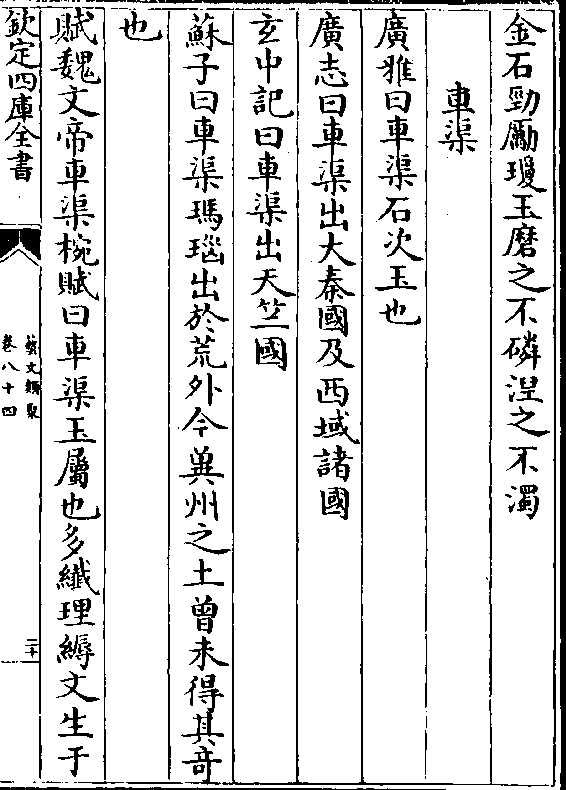 金石勁勵瓊玉磨之不磷涅之不濁
車渠
廣雅曰車渠石次玉也
廣志曰車渠出大秦國及西域諸國
玄中記曰車渠出天竺國
蘇子曰車渠瑪瑙出於荒外今冀州之土曾未得其竒
也
賦魏文帝車渠椀賦曰車渠玉屬也多纎理縟文生于
欽定四庫全書
藝文類聚
卷八十四
二十